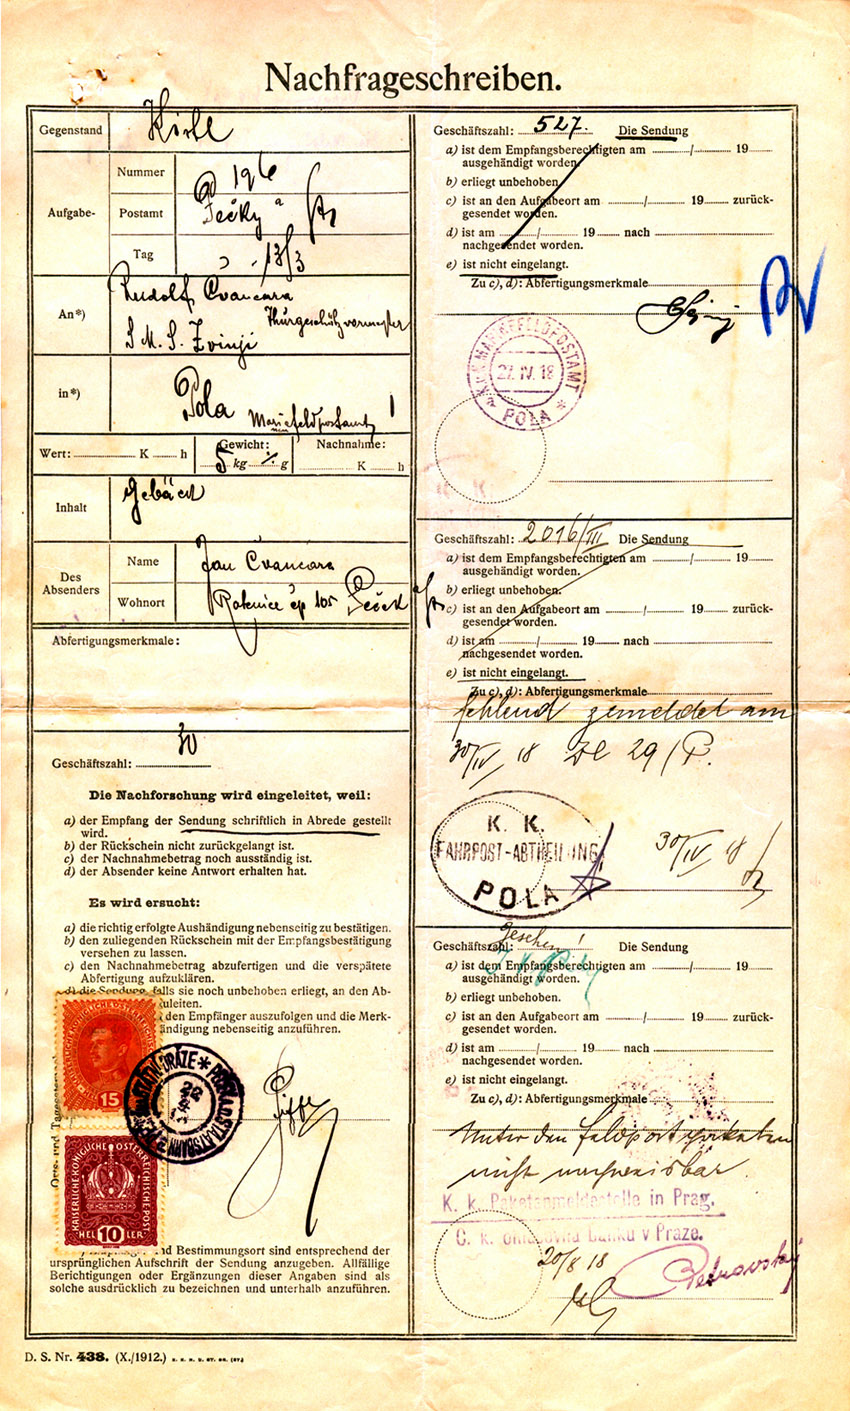 Nachfrageschreiben.
Gegenstand
Nummer 196
Aufgabe- Postamt Pečky
Tag 13/3
An*) Rudolf Čvančara
S. M. S.
in*) Pola
Wert: K h
Gewicht: 5 kg g
Nachnahme: K h
Inhalt
Des Absenders
Name Jan Čvančara
Wohnort čp 105
Abfertigungsmerkmale:
Geschäftszahl: 30
Die Nachforschung wird eingeleitet, weil:
a) der Empfang der Sendung schriftlich in Abrede gestellt
wird.
b) der Rückschein nicht zurückgelangt ist.
c) der Nachnahmebetrag noch ausständig ist.
d) der Absender keine Antwort erhalten hat.
Es wird ersucht:
a) die richtig erfolgte Aushändigung nebenseitig zu bestätigen.
b) den zuliegenden Rückschein mit der Empfangsbestätigung
versehen zu lassen.
c) den Nachnahmebetrag abzufertigen und die verspätete
Abfertigung aufzuklären.
d) die Sendung, falls sie noch unbehoben erliegt, an den Ab-
uleiten.
den Empfänger auszufolgen und die Merk-
ändigung nebenseitig anzuführen.
15
KAISERLICHE KÖNIGLICHE ÖSTERREICHISCHE POST
HEL 10 LER
und Bestimmungsort sind entsprechend der
ursprünglichen Aufschrift der Sendung anzugeben. Allfällige
Berichtigungen oder Ergänzungen dieser Angaben sind als
solche ausdrücklich zu bezeichnen und unterhalb anzuführen.
D. S. Nr. 438. (X./1912.)
Geschäftszahl: 527. Die Sendung
a) ist dem Empfangsberechtigten am / 19
ausgehändigt worden.
b) erliegt unbehoben.
c) ist an den Aufgabeort am / 19 zurück-
gesendet worden.
d) ist am / 19 nach
nachgesendet worden.
e) ist nicht eingelangt.
Zu c), d): Abfertigungsmerkmale
K.u.K. MARINEFELDPOSTAMT
27. IV. 18
* POLA *
Geschäftszahl: 2016/III Die Sendung
a) ist dem Empfangsberechtigten am / 19
ausgehändigt worden.
b) erliegt unbehoben.
c) ist an den Aufgabeort am / 19 zurück-
gesendet worden.
d) ist am / 19 nach
nachgesendet worden.
e) ist nicht eingelangt.
Zu c), d): Abfertigungsmerkmale
fehlend gemeldet am
30/IV 18 Zl 29/P.
K. K.
FAHRPOST-ABTHEILUNG
POLA
30/IV 18
Gesehen!
Geschäftszahl: Die Sendung
a) ist dem Empfangsberechtigten am / 19
ausgehändigt worden.
b) erliegt unbehoben.
c) ist an den Aufgabeort am / 19 zurück-
gesendet worden.
d) ist am / 19 nach
nachgesendet worden.
e) ist nicht eingelangt.
Zu c), d): Abfertigungsmerkmale
Unter den
nicht nachweisbar.
K. k. Paketanmeldestelle in Prag.
C. k. v Praze.
20/8 18